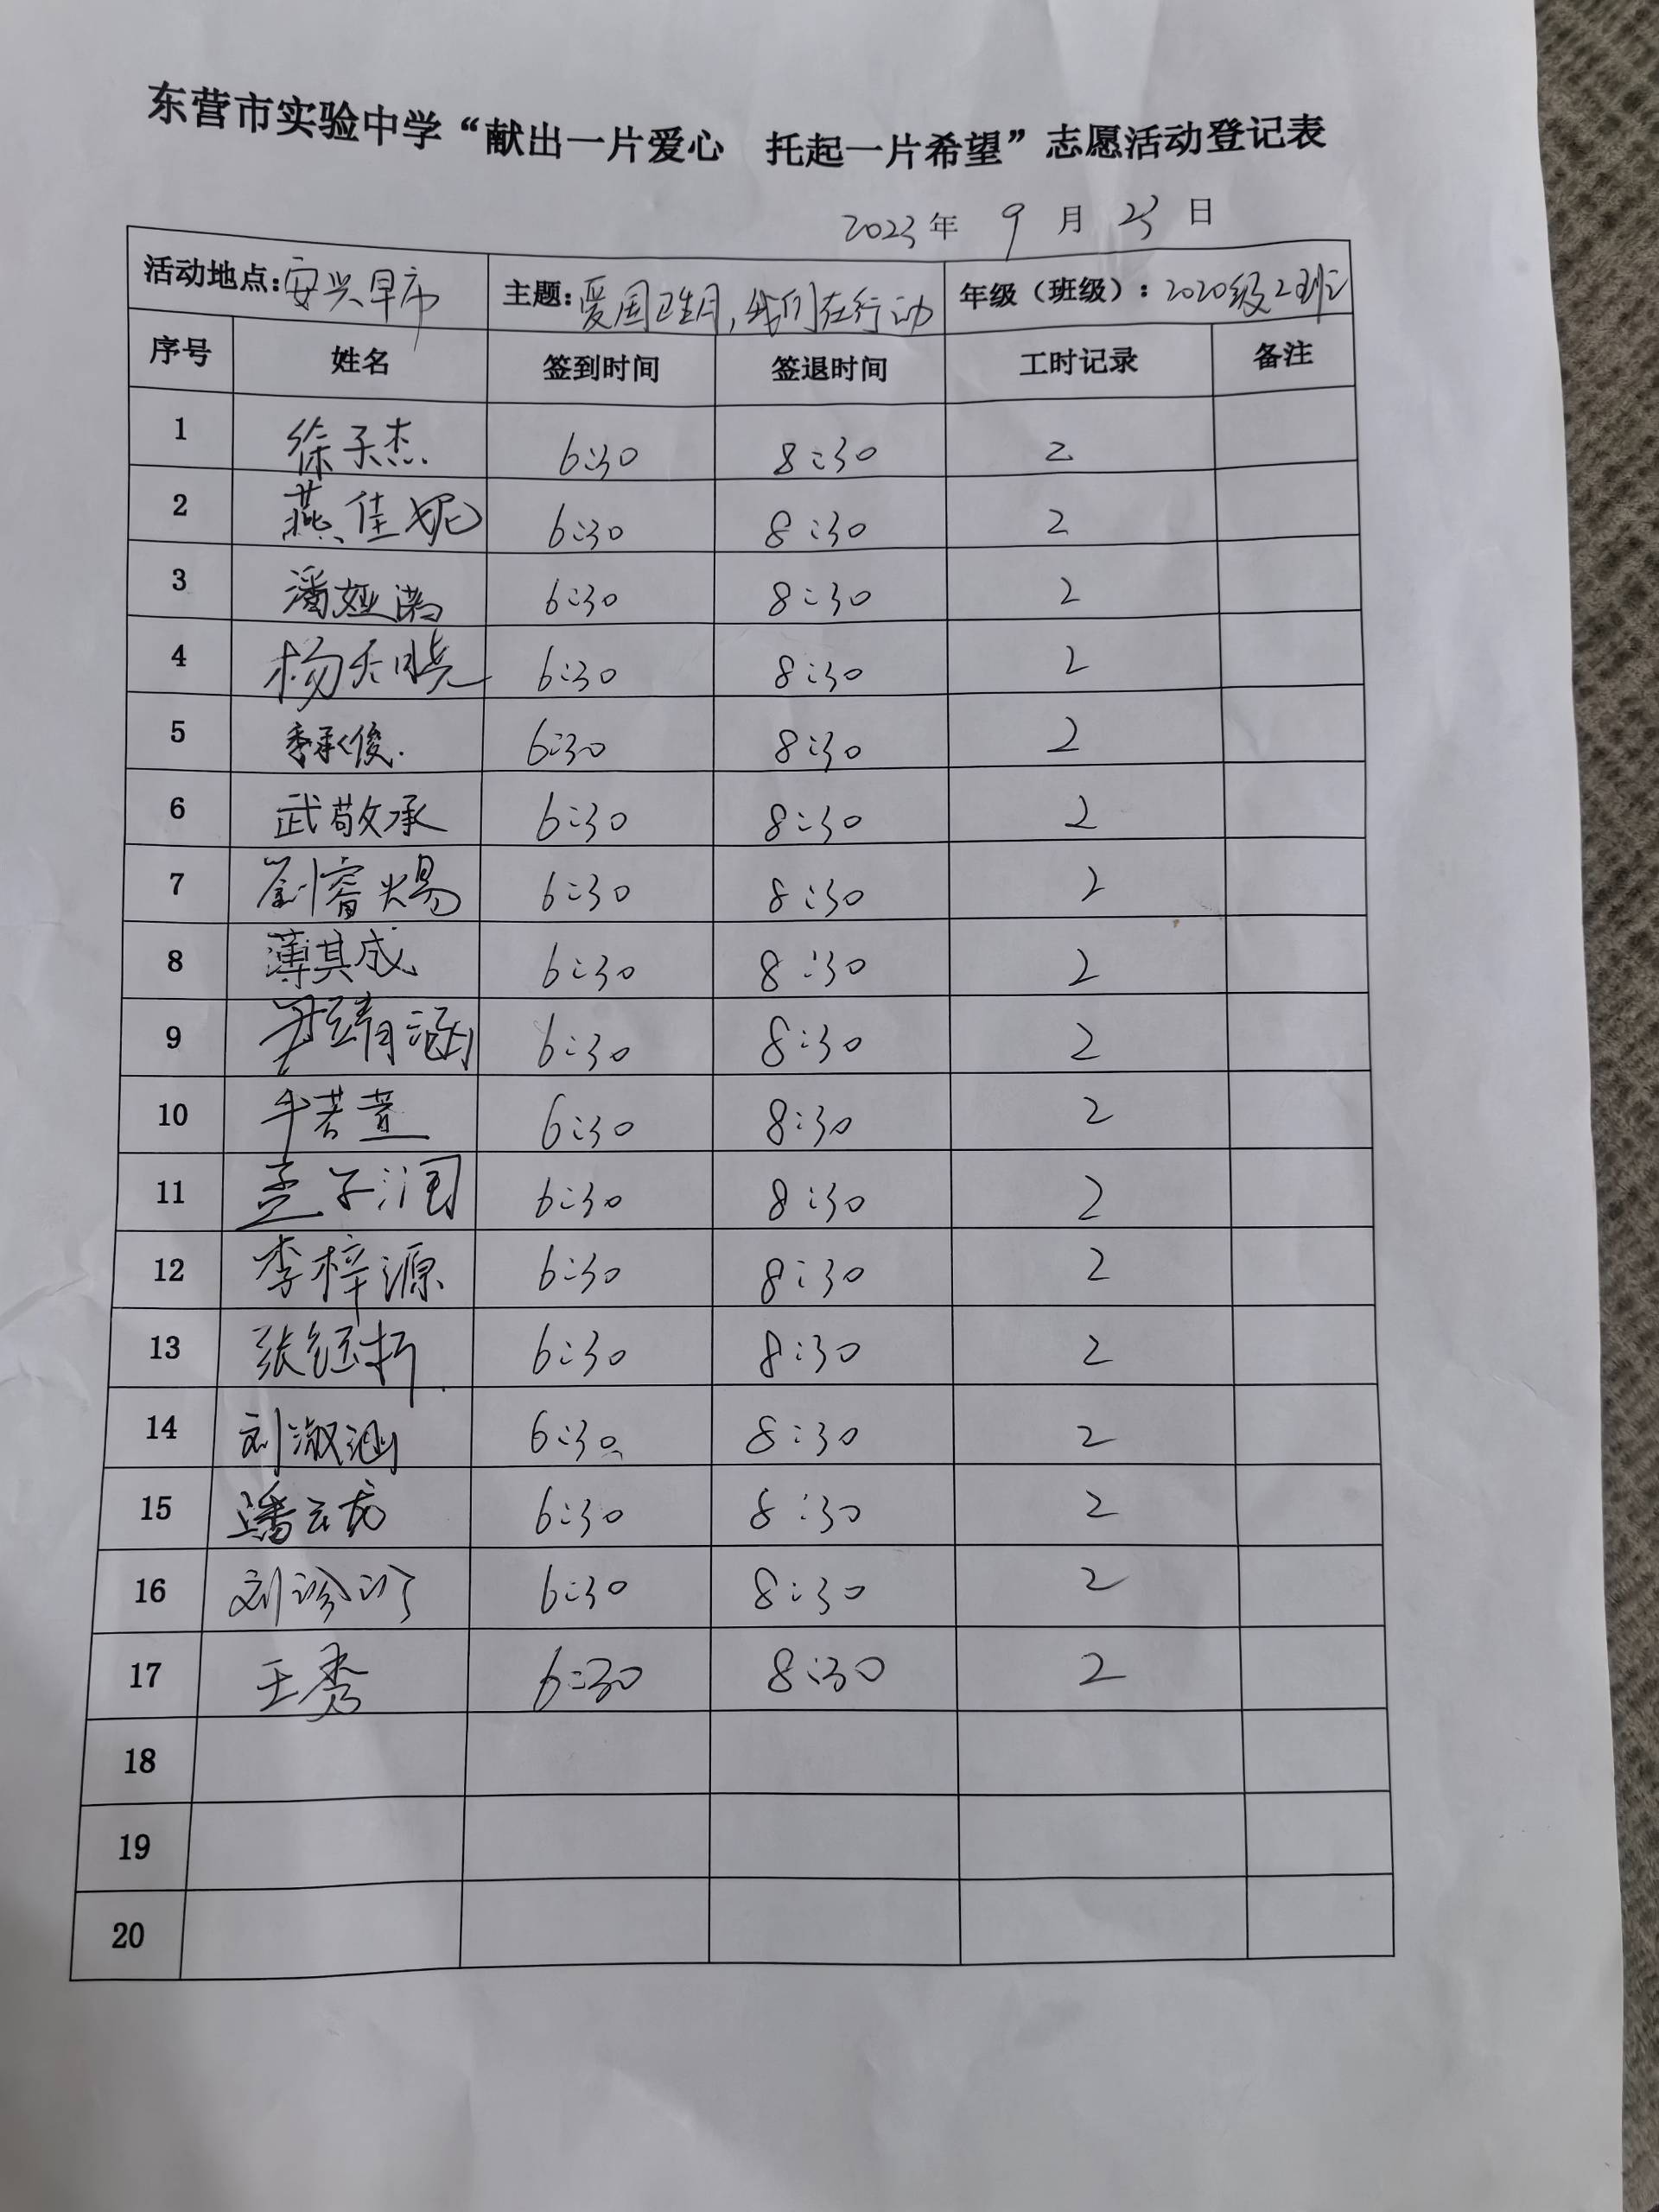 东营市实验中学“献出一片爱心 托起一片希望”志愿活动登记表
2023年 9 月 23 日
活动地点:安兴早市 主题:爱国卫生月,我们在行动 年级（班级）:2020级2班
序号 姓名 签到时间 签退时间 工时记录 备注
1 徐子杰 6:30 8:30 2
2 燕佳妮 6:30 8:30 2
3 潘娅 6:30 8:30 2
4 杨天晓 6:30 8:30 2
5 季承俊 6:30 8:30 2
6 武敬承 6:30 8:30 2
7 刘睿炀 6:30 8:30 2
8 薄其成 6:30 8:30 2
9 靖涵 6:30 8:30 2
10 牛若萱 6:30 8:30 2
11 孟子润 6:30 8:30 2
12 李梓源 6:30 8:30 2
13 张钰 6:30 8:30 2
14 刘淑涵 6:30 8:30 2
15 潘云龙 6:30 8:30 2
16 刘诊 6:30 8:30 2
17 王秀 6:30 8:30 2
18
19
20